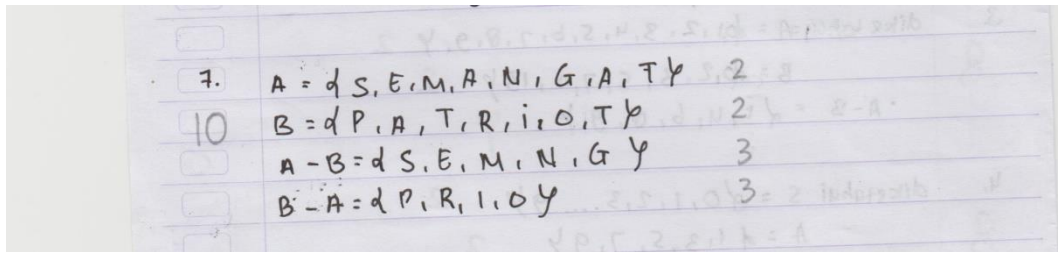 7. A = {S, E, M, A, N, G, A, T} 2
10 B = {P, A, T, R, i, O, T} 2
A - B = {S, E, M, N, G} 3
B - A = {P, R, I, O} 3